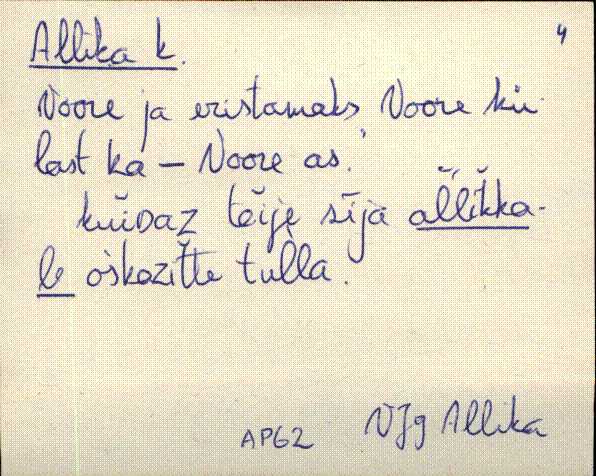 4
Allika k.
Voore ja eristamaks Voore kü-
last ka – Voore as.
kuiDaz teije sīja allikka-
le oskazitte tulla.
AP62 VJg Allika